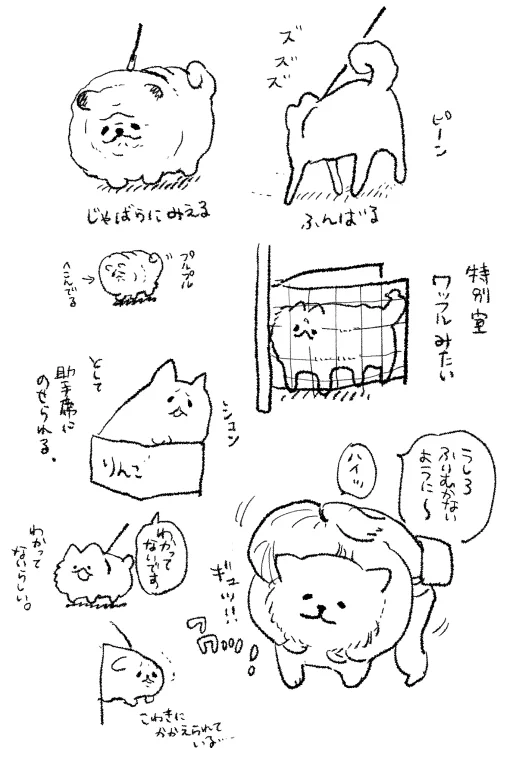 じゃばらにみえる
ズ
ズ
ズ
ピーン
ふんばる
プルプル
へこんでる
特別室
ワッフルみたい
として
助手席に
のせられる。
りんご
ション
うしろ
ふりむかない
ように〜
ハイッ
ギュッ!!
わかって
ないです
わかって
ないらしい。
こわきに
かかえられて
いる…